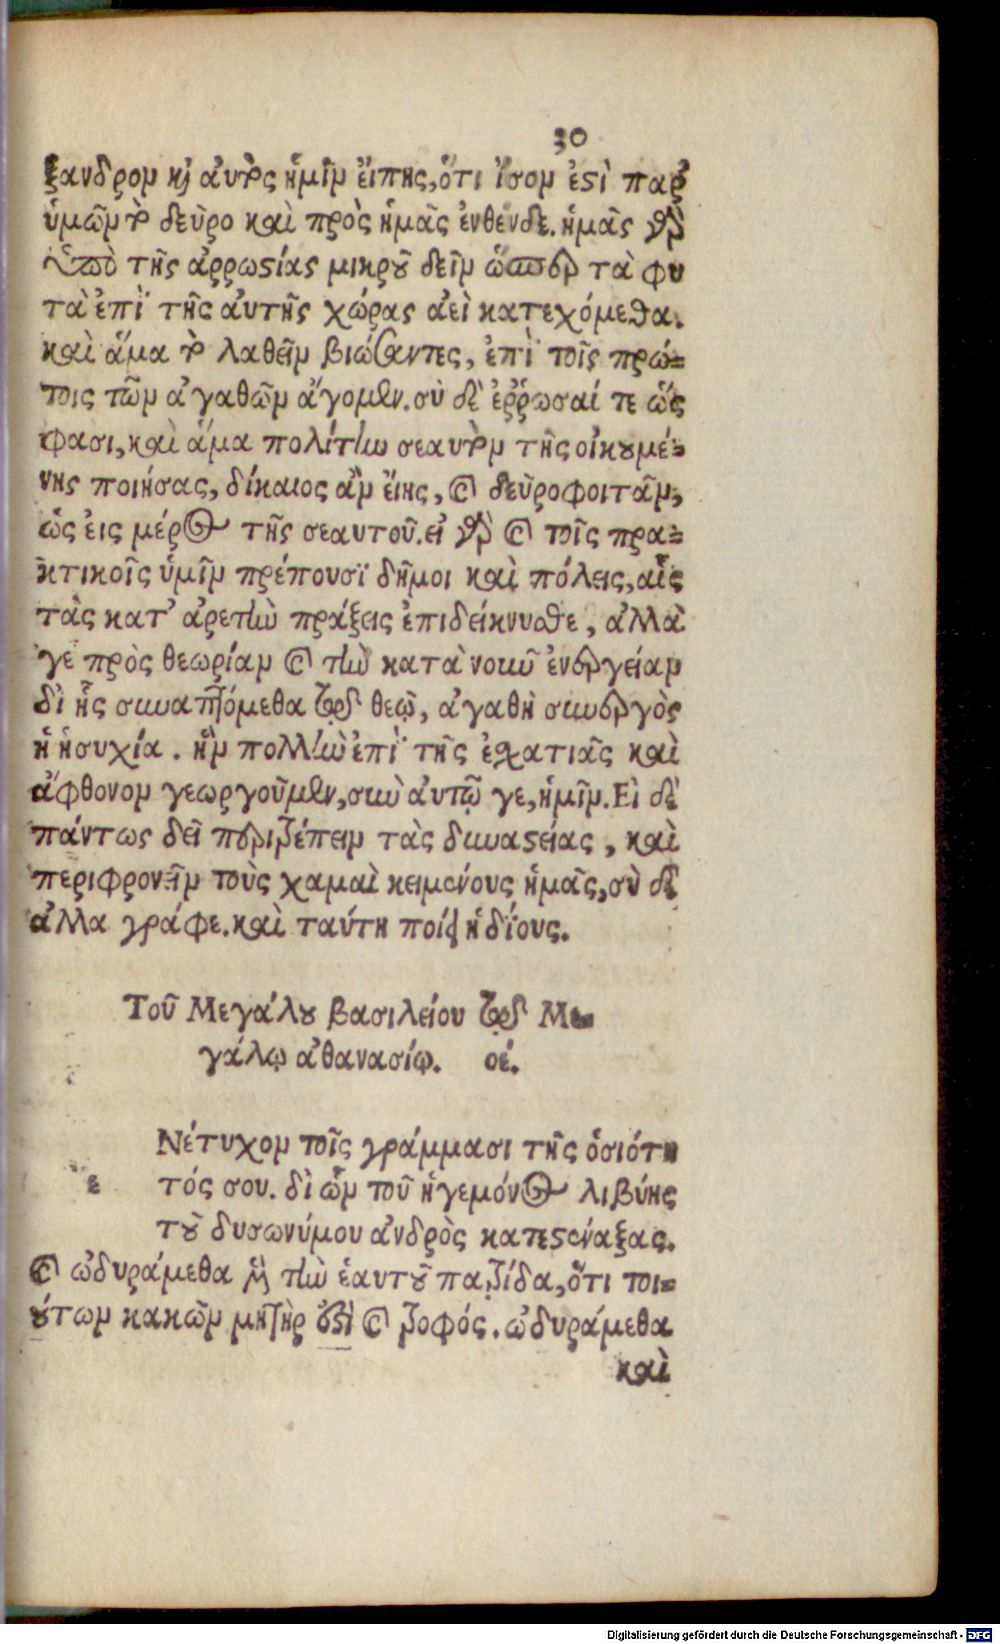 30
ξανδρον κỳ αὐτὸς ἡμῖν εἴπης, ὅτι ἴσον ἐστὶ παρ'
ὑμῶν τὸ δεῦρο καὶ πρὸς ἡμᾶς ἐνθένδε. ἡμᾶς γὰρ
ὑπὸ τῆς ἀρρωστίας μικροῦ δεῖν ὥσπερ τὰ φυ
τὰ ἐπὶ τῆς αὐτῆς χώρας ἀεὶ κατεχόμεθα.
καὶ ἅμα τὸ λαθεῖν βιώσαντες, ἐπὶ τοῖς πρώ-
τοις τῶν ἀγαθῶν ἄγομεν. σὺ δὲ ἐῤῥωσαί τε ὥς
φασι, καὶ ἅμα πολίτην σεαυτὸν τῆς οἰκουμέ-
νης ποιήσας, δίκαιος ἂν εἴης, καὶ δεῦρο φοιτᾶν,
ὡς εἰς μέρος τῆς σεαυτοῦ. εἰ γὰρ καὶ τοῖς πρα-
κτικοῖς ὑμῖν πρέπουσι δῆμοι καὶ πόλεις, αἷς
τὰς κατ' ἀρετὴν πράξεις ἐπιδείκνυσθε, ἀλλὰ
γε πρὸς θεωρίαν καὶ τὴν κατὰ νοῦν ἐνέργειαν
δι ἧς συναπτόμεθα τῷ θεῷ, ἀγαθὴ συνεργὸς
ἡ ἡσυχία. ἣν πολλὴν ἐπὶ τῆς ἐσχατιᾶς καὶ
ἄφθονον γεωργοῦμεν, σὺν αὐτῷ γε, ἡμῖν. Εἰ δὲ
πάντως δεῖ περιβλέπειν τὰς δυναστείας, καὶ
περιφρονεῖν τοὺς χαμαὶ κειμένους ἡμᾶς, σὺ δὲ
ἀλλα γράφε. καὶ ταύτη ποίει ἡδίους.
Τοῦ Μεγάλου βασιλείου τῷ Με
γάλῳ ἀθανασίῳ. οέ.
ε Νέτυχον τοῖς γράμμασι τῆς ὁσιότη
τός σου. δι ὧν τοῦ ἡγεμόνος λιβύης
τοῦ δυσωνύμου ἀνδρὸς κατεστέναξας.
καὶ ὠδυράμεθα μὲν τὴν ἑαυτοῦ πατρίδα, ὅτι τοι-
ούτων κακῶν μήτηρ ἐστὶ καὶ τροφός. ὠδυράμεθα
καὶ
Digitalisierung gefördert durch die Deutsche Forschungsgemeinschaft - DFG